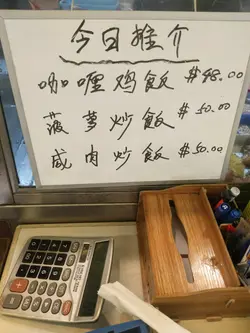 今日推介
咖喱鸡飯 $48.00
菠萝炒飯 $50.00
咸肉炒飯 $50.00